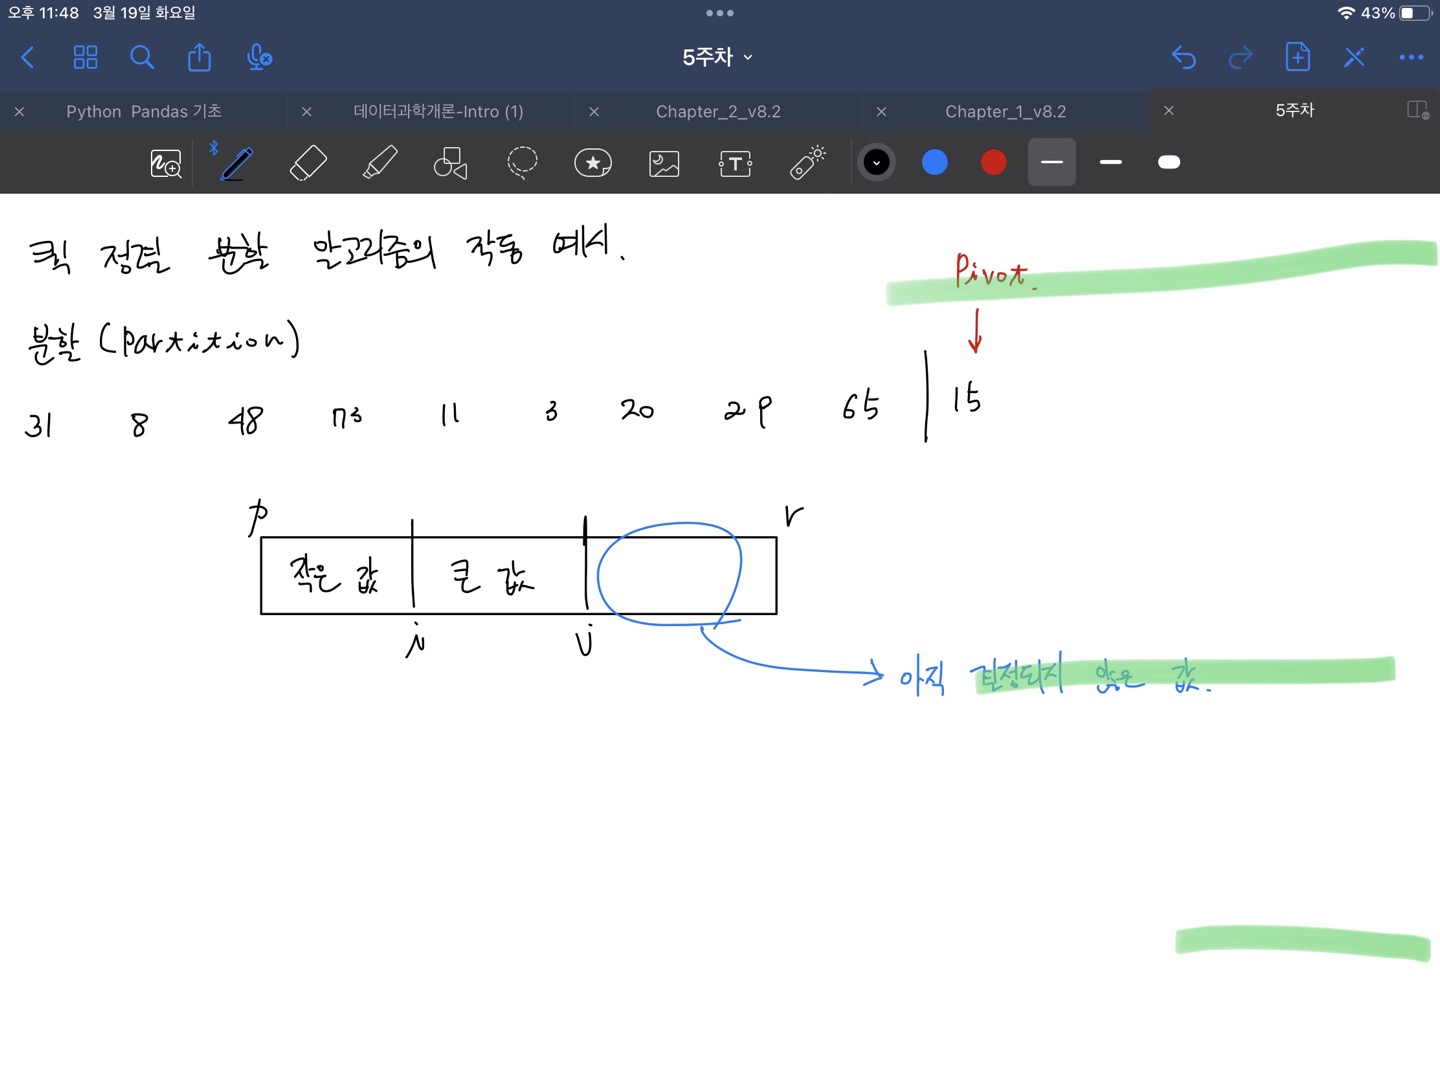 오후 11:48 3월 19일 화요일
43%
5주차
Python Pandas 기초
데이터과학개론-Intro (1)
Chapter_2_v8.2
Chapter_1_v8.2
5주차
퀵 정렬 분할 알고리즘의 작동 예시.
Pivot.
분할 (Partition)
31 8 48 73 11 3 20 29 65 | 15
p r
작은 값 큰 값
i j
아직 결정되지 않은 값.